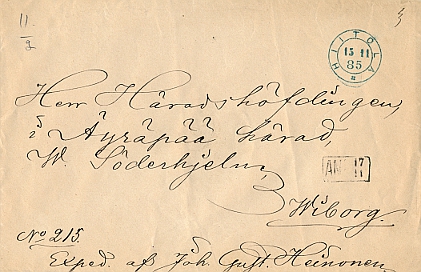 11
2
HIITOLA
15 11
85
Herr Häradshöfdingen,
i Äyräpää härad,
W. Söderhjelm,
ANK 17
11
Wiborg.
No 215.
Exped. af Joh. Gust. Heinonen,